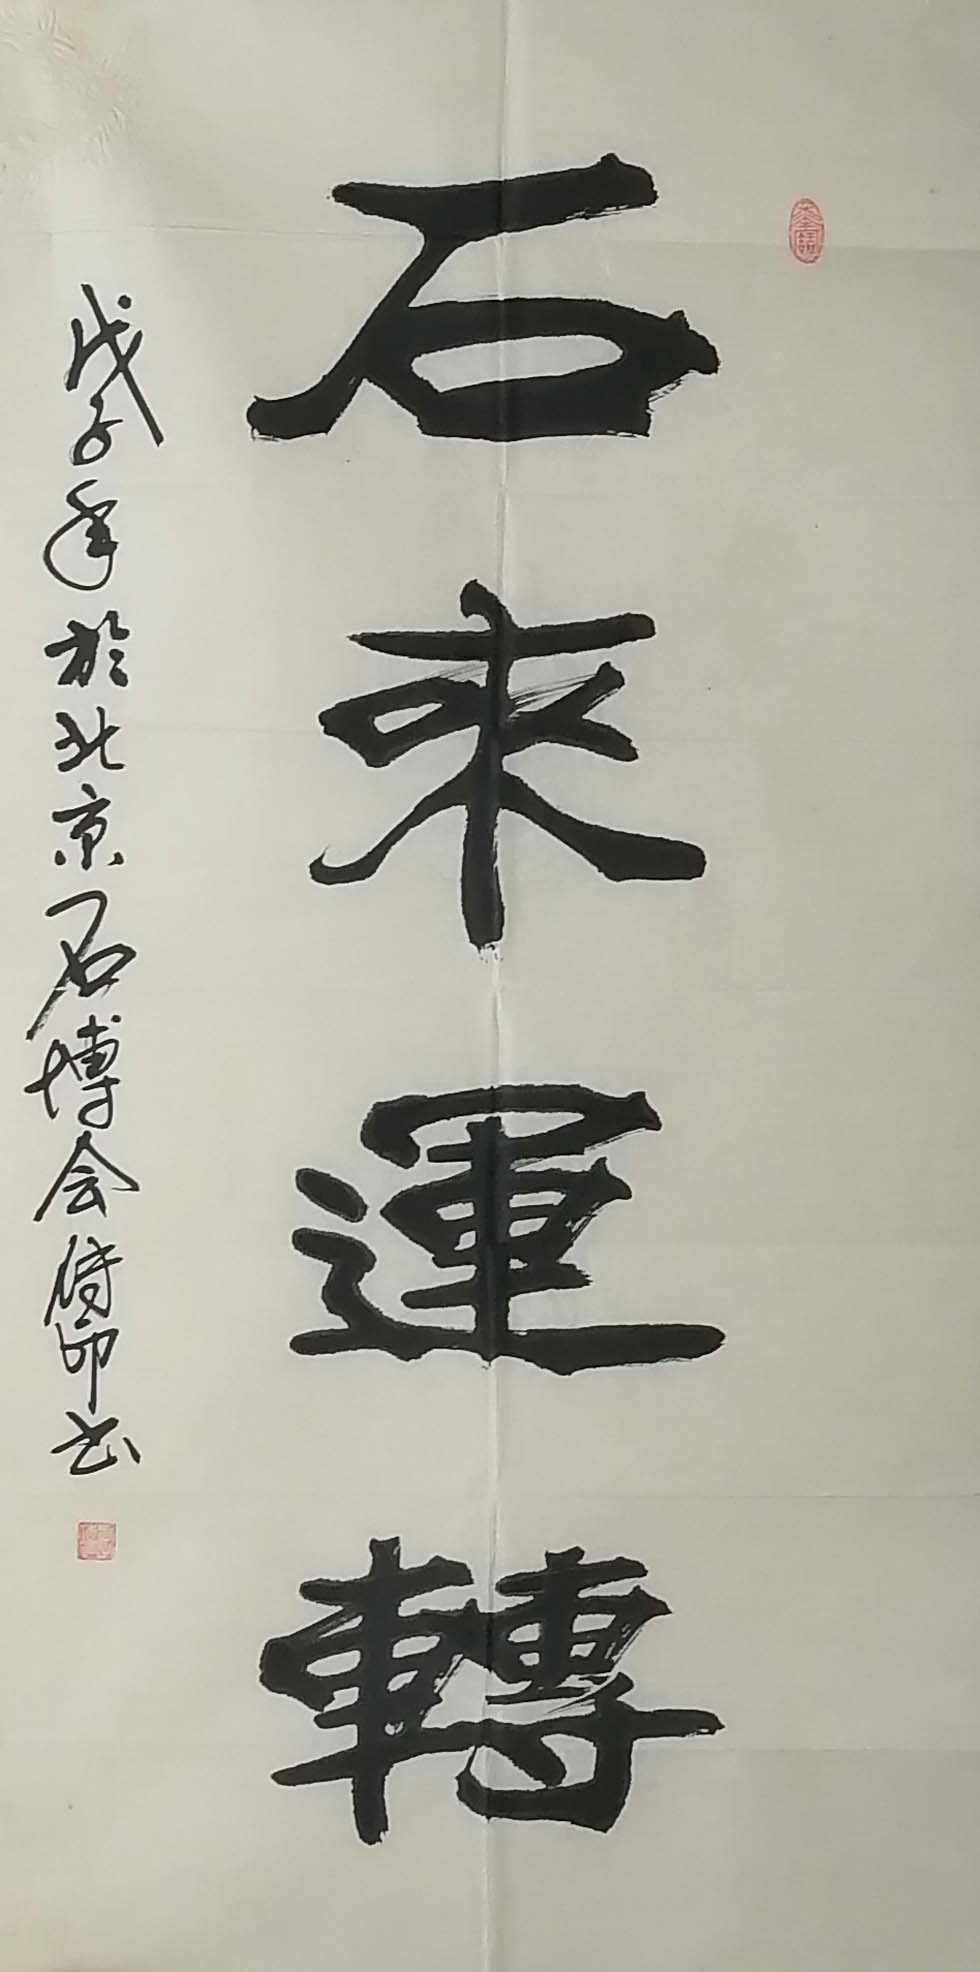 石來運轉
戊子年於北京石博会傅印书